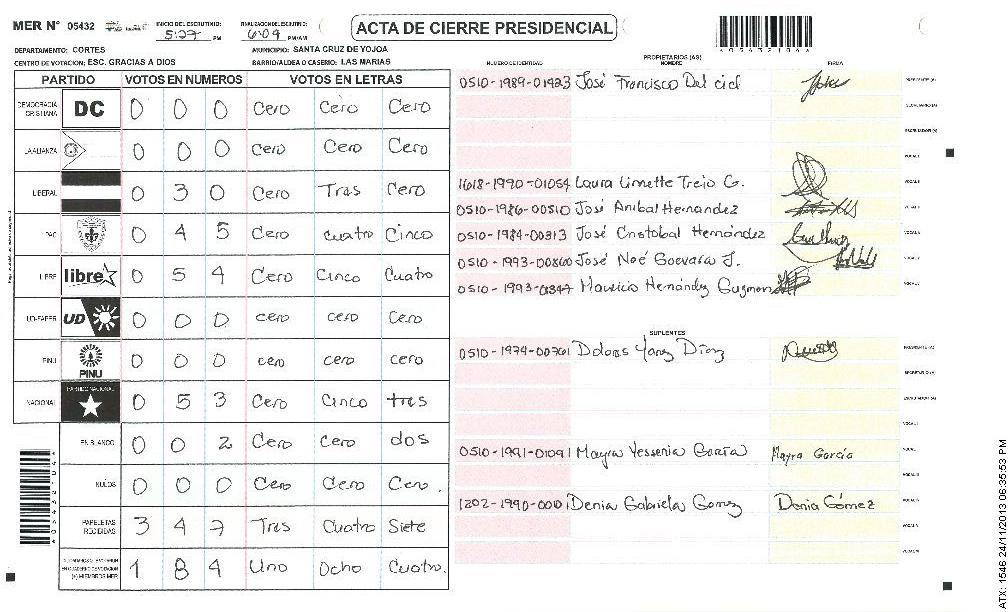 MER N° 05432
INICIO DEL ESCRUTINIO: 5:27 PM
FINALIZACION DEL ESCRUTINIO: 6:09 PM/AM
ACTA DE CIERRE PRESIDENCIAL
DEPARTAMENTO: CORTES
MUNICIPIO: SANTA CRUZ DE YOJOA
CENTRO DE VOTACION: ESC. GRACIAS A DIOS
BARRIO/ALDEA O CASERIO: LAS MARIAS
PARTIDO VOTOS EN NUMEROS VOTOS EN LETRAS
DEMOCRACIA CRISTIANA DC 0 0 0 Cero Cero Cero
LA ALIANZA 0 0 0 Cero Cero Cero
LIBERAL 0 3 0 Cero Tres Cero
PAC 0 4 5 Cero cuatro Cinco
LIBRE libre 0 5 4 Cero Cinco Cuatro
UD-FAPER UD 0 0 0 cero cero Cero
PINU PINU 0 0 0 cero cero cero
NACIONAL PARTIDO NACIONAL 0 5 3 Cero Cinco tres
EN BLANCO 0 0 2 Cero Cero dos
NULOS 0 0 0 Cero Cero Cero.
PAPELETAS RECIBIDAS 3 4 7 Tres Cuatro Siete
1 8 4 Uno Ocho Cuatro.
05432106
PROPIETARIOS (AS)
NUMERO DE IDENTIDAD NOMBRE FIRMA
0510-1989-01423 José Francisco Del cid PRESIDENTE (A)
SECRETARIO (A)
ESCRUTADOR (A)
VOCAL I
1618-1990-01054 Laura Linette Trejo G.
0510-1986-00510 José Anibal Hernandez
0510-1984-00313 José Cristobal Hernández
0510-1993-00860 José Noé Guevara J.
0510-1993- Mauricio Hernández Guzman
SUPLENTES
0510-1974-00761 Dolores Yanez Díaz PRESIDENTE (A)
SECRETARIO (A)
ESCRUTADOR (A)
VOCAL I
0510-1991-01091 Mayra Yessenia García Mayra García
1202-1990- Denia Gabriela Gomez Denia Gómez
ATX: 1546 24/11/2013 06:35:53 PM